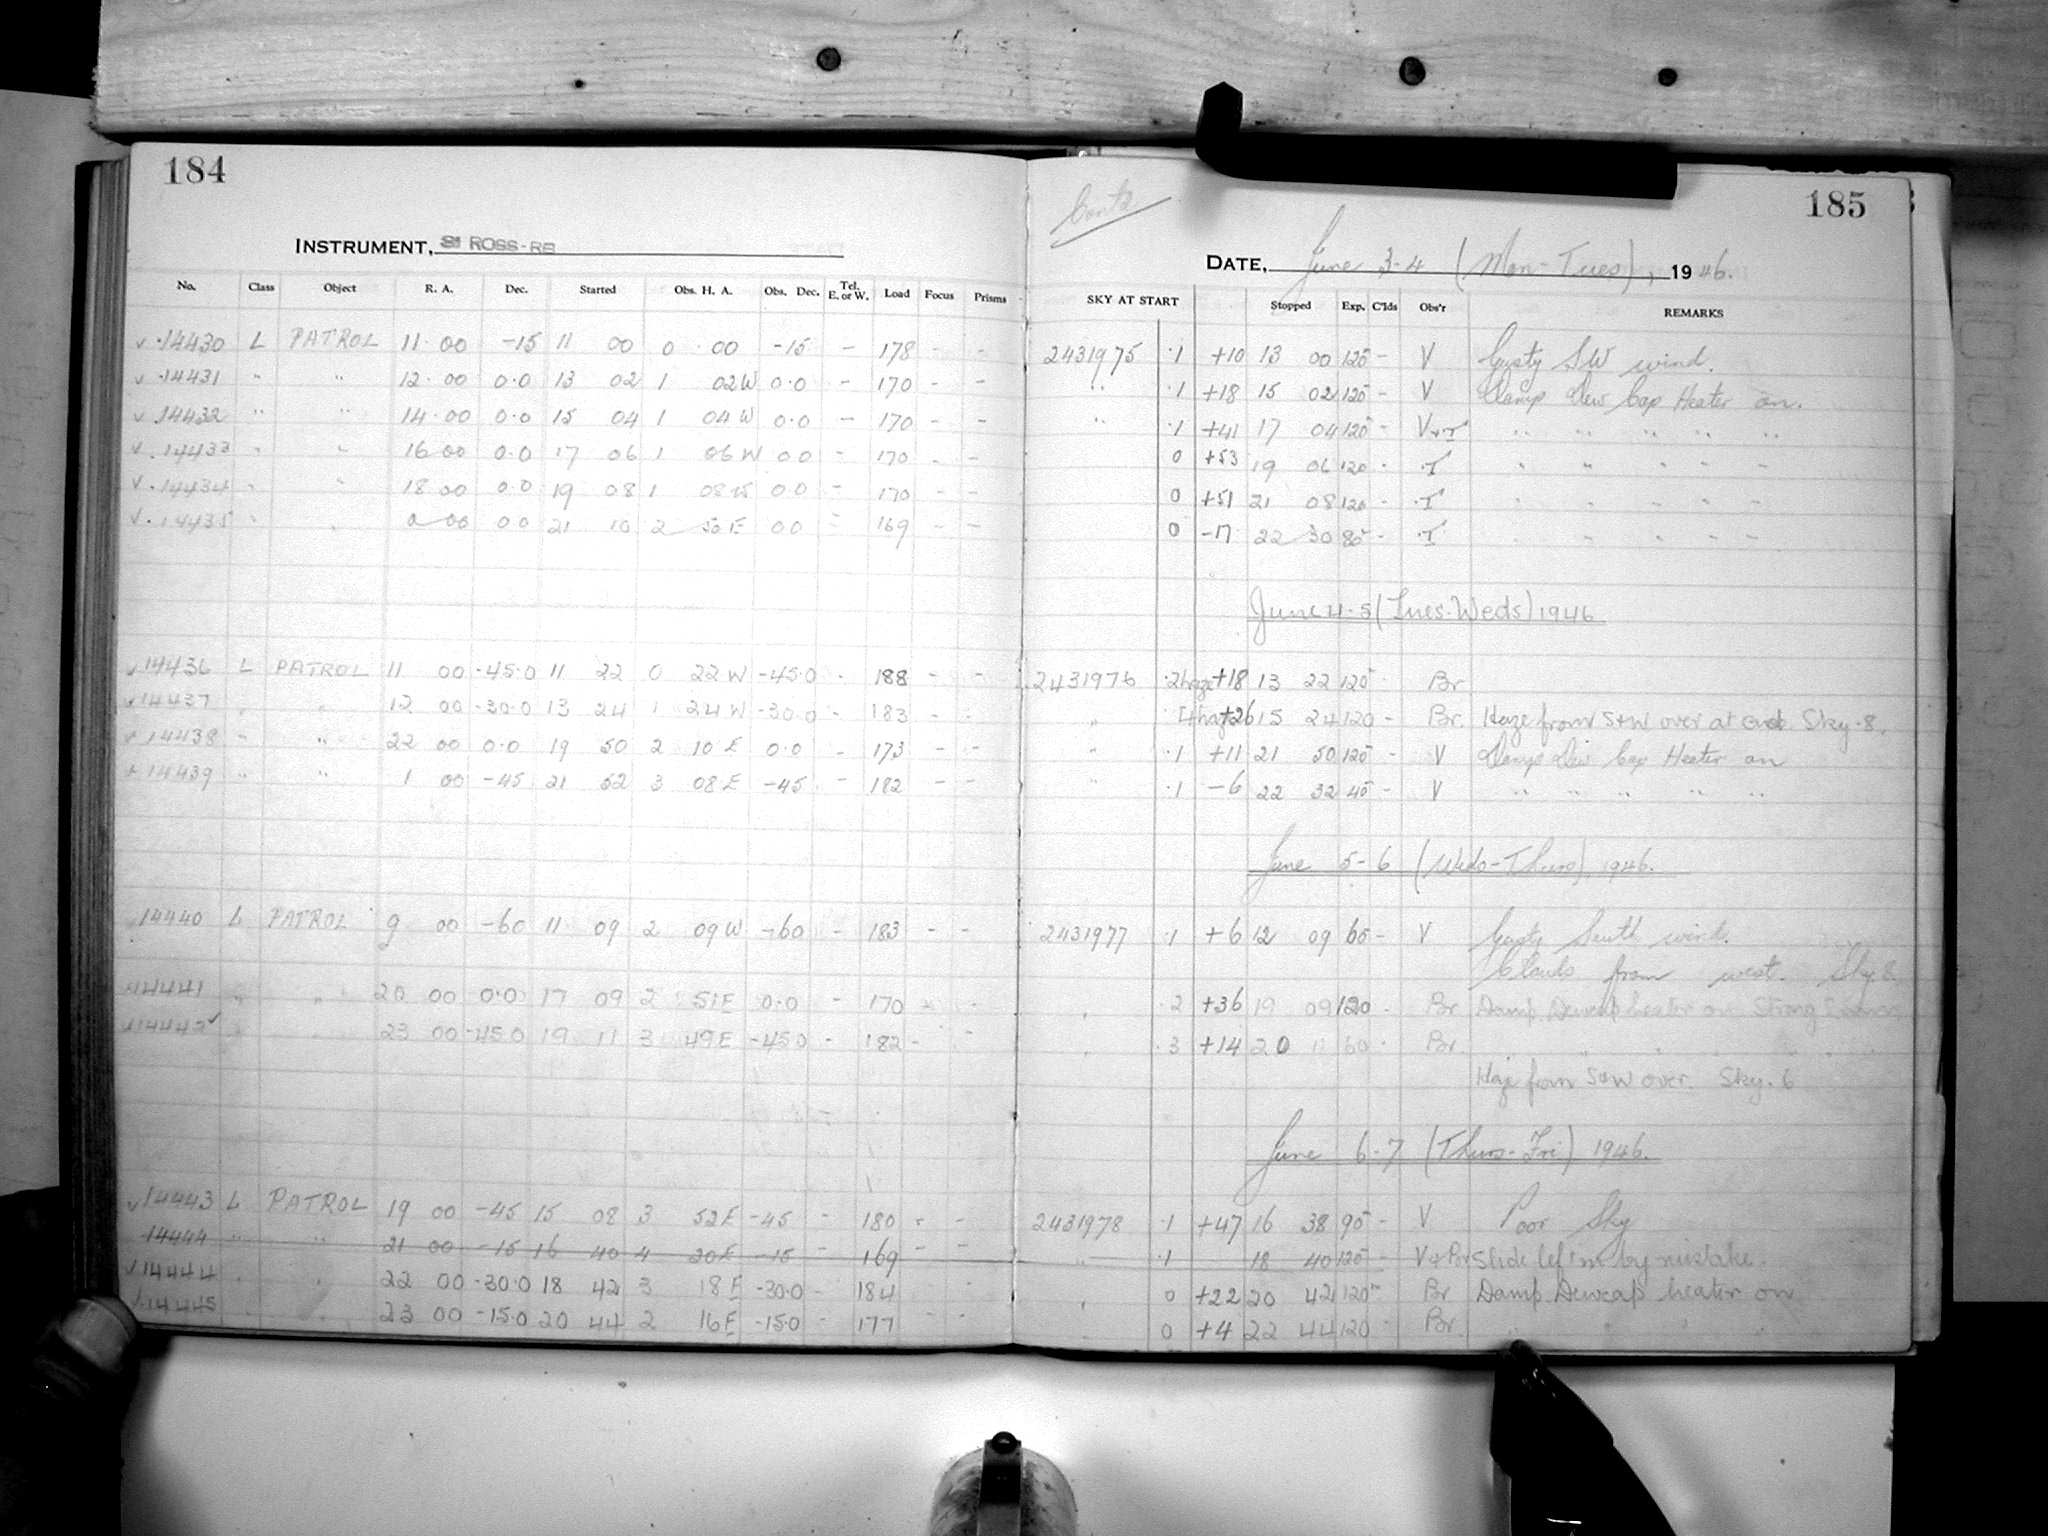 184
INSTRUMENT, ROSS-RB
No. Class Object R. A. Dec. Started Obs. H. A. Obs. Dec. Tel. E. or W. Load Focus Prisms
14430 L PATROL 11 00 -15 11 00 0 00 -15 - 178 - -
14431 " " 12 00 0.0 13 02 1 02W 0.0 - 170 - -
14432 " " 14 00 0.0 15 04 1 04W 0.0 - 170 - -
14433 " " 16 00 0.0 17 06 1 06W 00 - 170 - -
14434 " " 18 00 0.0 19 08 1 08 00 - 170 - -
14435 " " 00 00 21 10 2 50E 00 - 169 - -
14436 L PATROL 11 00 -45.0 11 22 0 22W -45.0 - 188 - -
14437 " " 12 00 -30.0 13 24 1 24W -30.0 - 183 - -
14438 " " 22 00 0.0 19 50 2 10E 0.0 - 173 - -
14439 " " 1 00 -45 21 52 3 08E -45 - 182 - -
14440 L PATROL 9 00 -60 11 09 2 09W -60 - 183 - -
14441 " " 20 00 0.0 17 09 2 51E 0.0 - 170 - -
14442 " " 23 00 -45.0 19 11 3 49E -45.0 - 182 - -
14443 L PATROL 19 00 -45 15 08 3 52E -45 - 180 - -
14444 " " 21 00 -15 16 40 4 20E -15 - 169 - -
14444 " " 22 00 -30.0 18 42 3 18E -30.0 - 184 - -
14445 " " 23 00 -15.0 20 44 2 16E -15.0 - 177 - -
185
DATE, June 3-4 (Mon-Tues), 1946.
SKY AT START Stopped Exp. C'lds Obs'r REMARKS
2431975 .1 +10 13 00 120 - V Gusty SW wind.
" .1 +18 15 02 120 - V Damp Dew Cap Heater on.
" .1 +41 17 04 120 - V+T " " " " "
0 +53 19 06 120 - T " " " " "
0 +51 21 08 120 - T " " " " "
0 -17 22 30 80 - T " " " " "
June 4-5 (Tues-Weds) 1946
2431976 .2 haze +18 13 22 120 - Br
" +26 15 24 120 - Br. Haze from S+W over at end. Sky .8.
" .1 +11 21 50 120 - V Damp Dew Cap Heater on
" .1 -6 22 32 40 - V " " " " "
June 5-6 (Weds-Thurs), 1946.
2431977 .1 +6 12 09 60 - V Gusty South wind.
Clouds from west. Sky .8.
" .2 +36 19 09 120 - Br Damp. Dewcap heater on. Strong S
" .3 +14 20 11 60 - Br. " " " "
Haze from S+W over. Sky .6
June 6-7 (Thurs-Fri) 1946.
2431978 .1 +47 16 38 90 - V Poor Sky
" .1 18 40 120 - V+Br Slide left in by mistake.
" 0 +22 20 42 120 - Br Damp. Dewcap heater on
0 +4 22 44 120 - Br. " " "